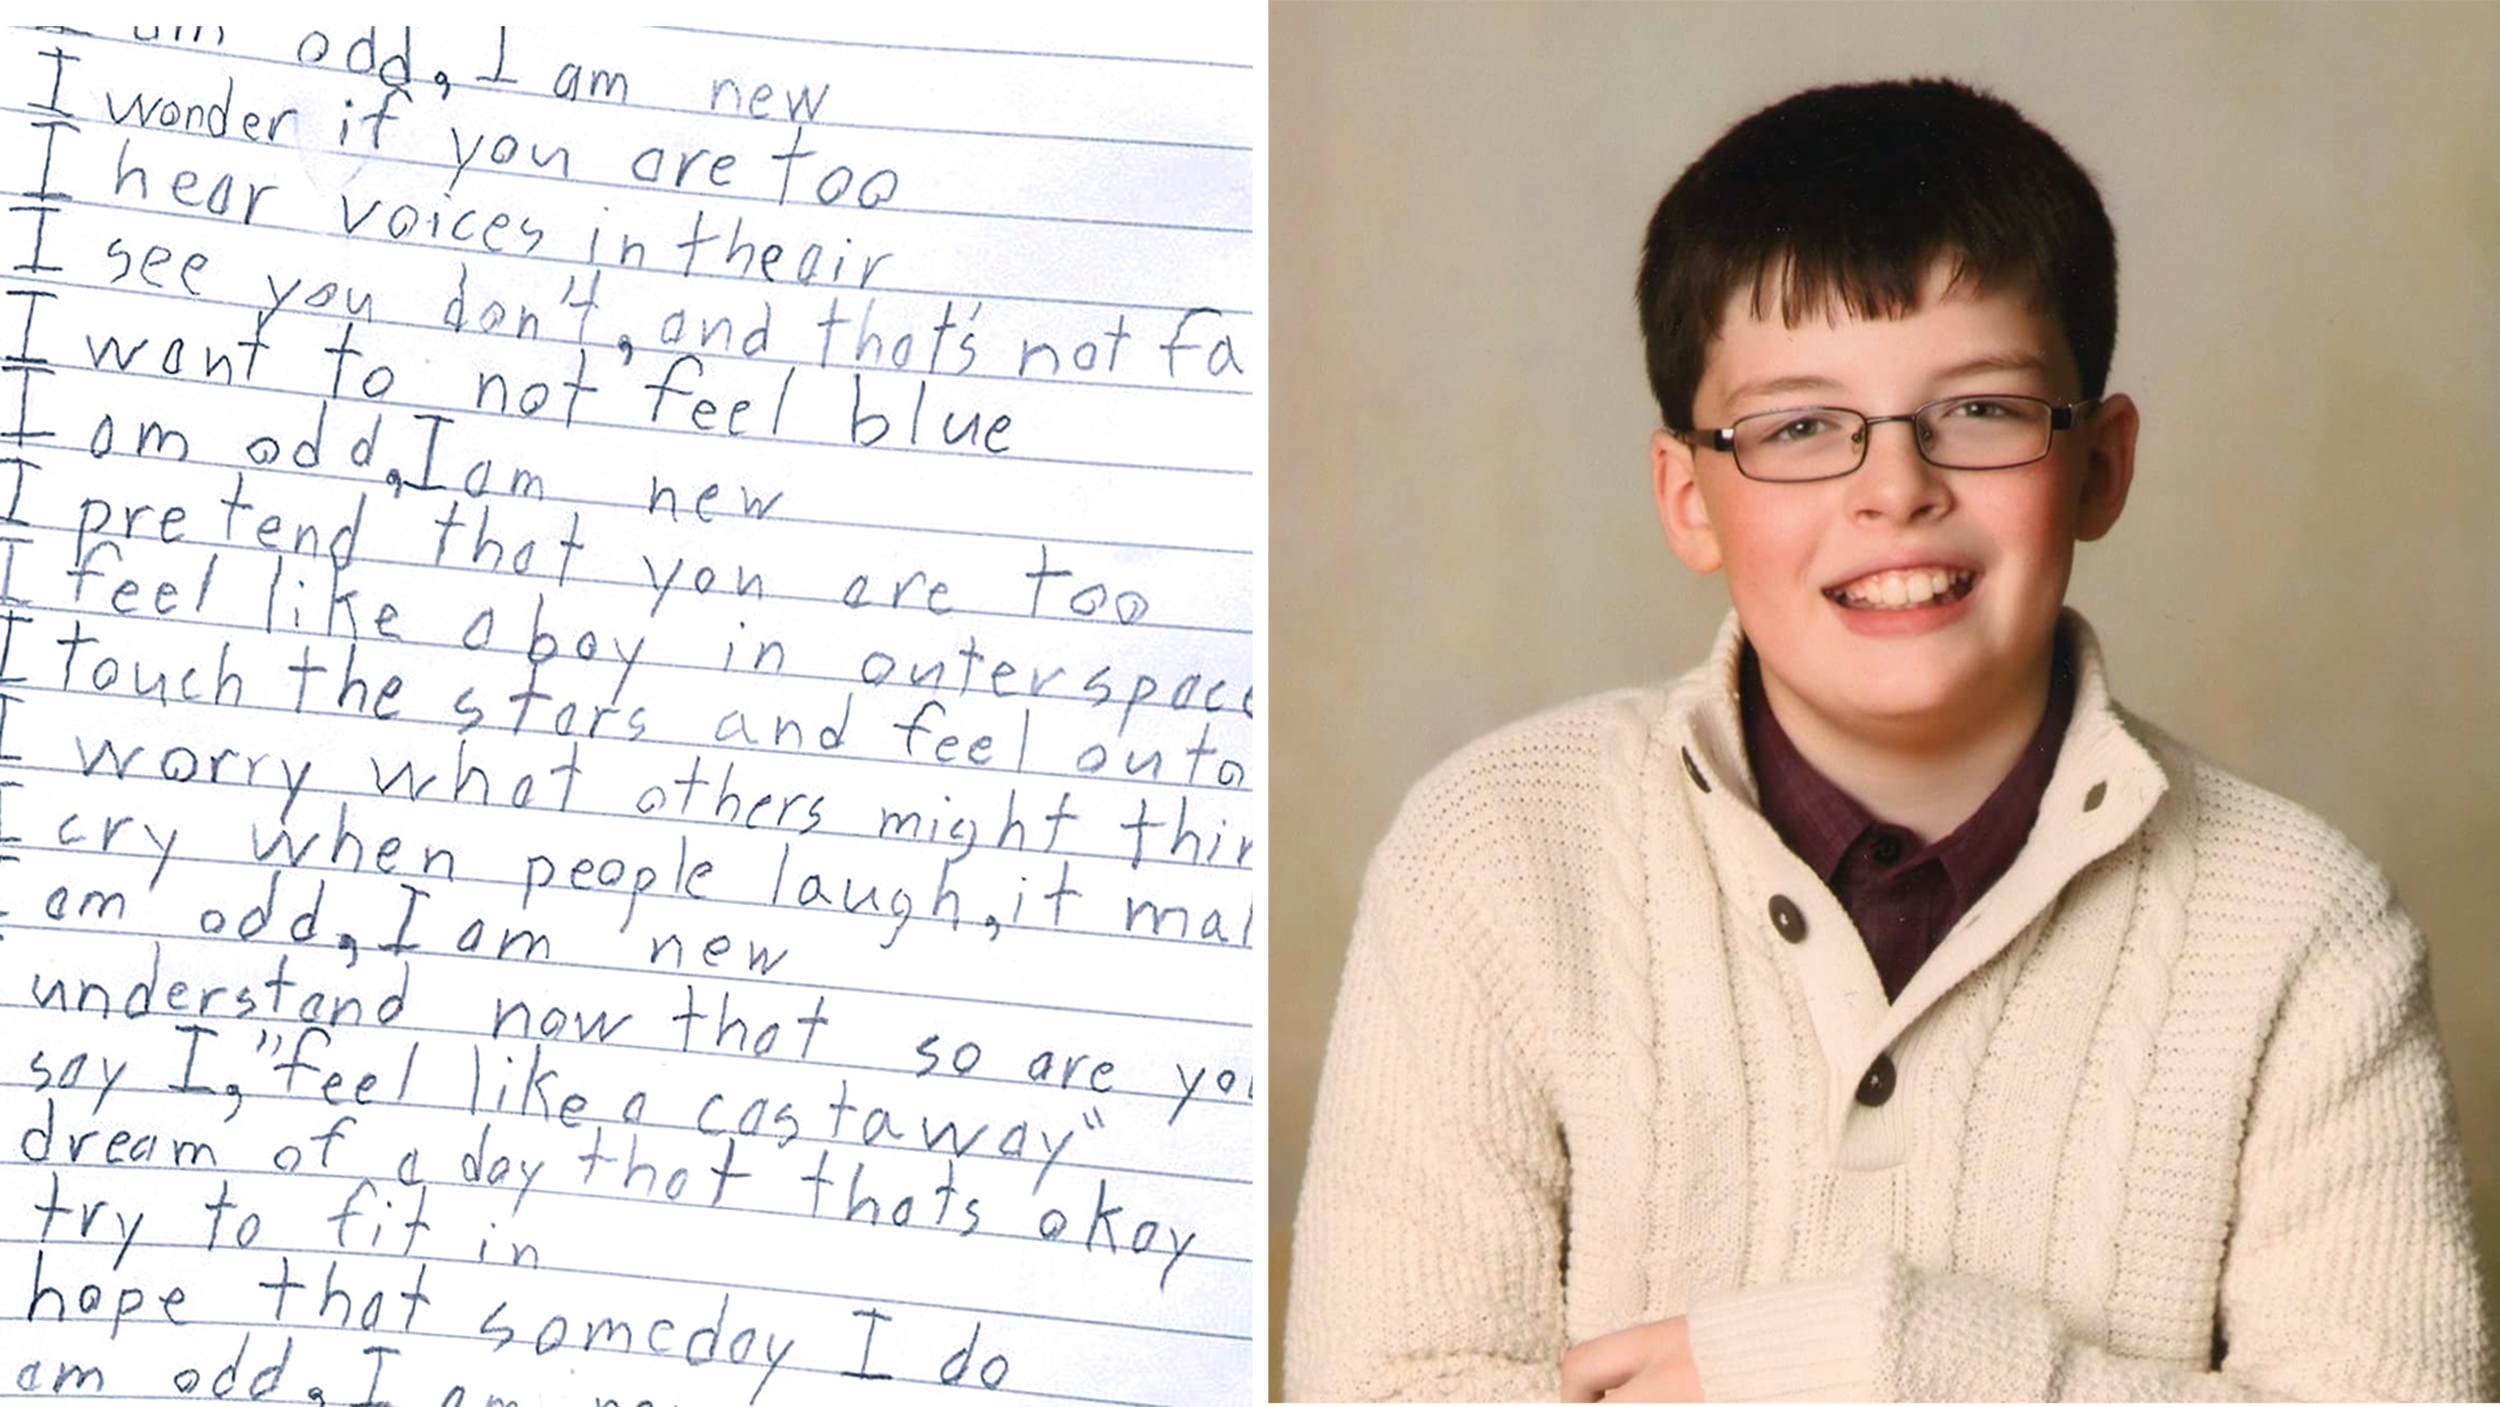 I am odd, I am new
I wonder if you are too
I hear voices in the air
I see you don't, and that's not fa
I want to not feel blue
I am odd, I am new
I pretend that you are too
I feel like a boy in outerspace
I touch the stars and feel outa
I worry what others might thin
I cry when people laugh, it mak
I am odd, I am new
understand now that so are you
say I, "feel like a castaway"
dream of a day that thats okay
try to fit in
hope that someday I do
am odd, I am ne